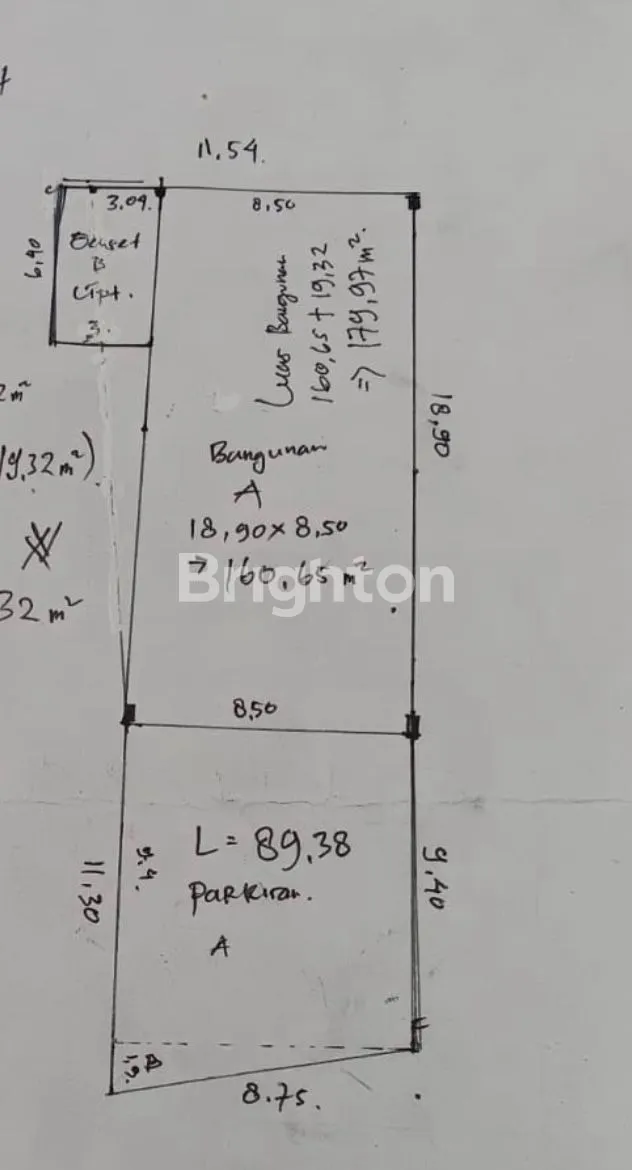 11.54.
3.09.
8,50
6,40
Genset
B
Lipt.
3.
Luas Bangunan
160,65 + 19,32
=> 179,97 m².
2 m²
19,32 m²)
32 m²
18,90
Bangunan
A
18,90 x 8,50
→ 160,65 m²
Brighton
8,50
11,30
9.4.
L = 89,38
Parkiran.
A
9,40
1,9.
8.75.